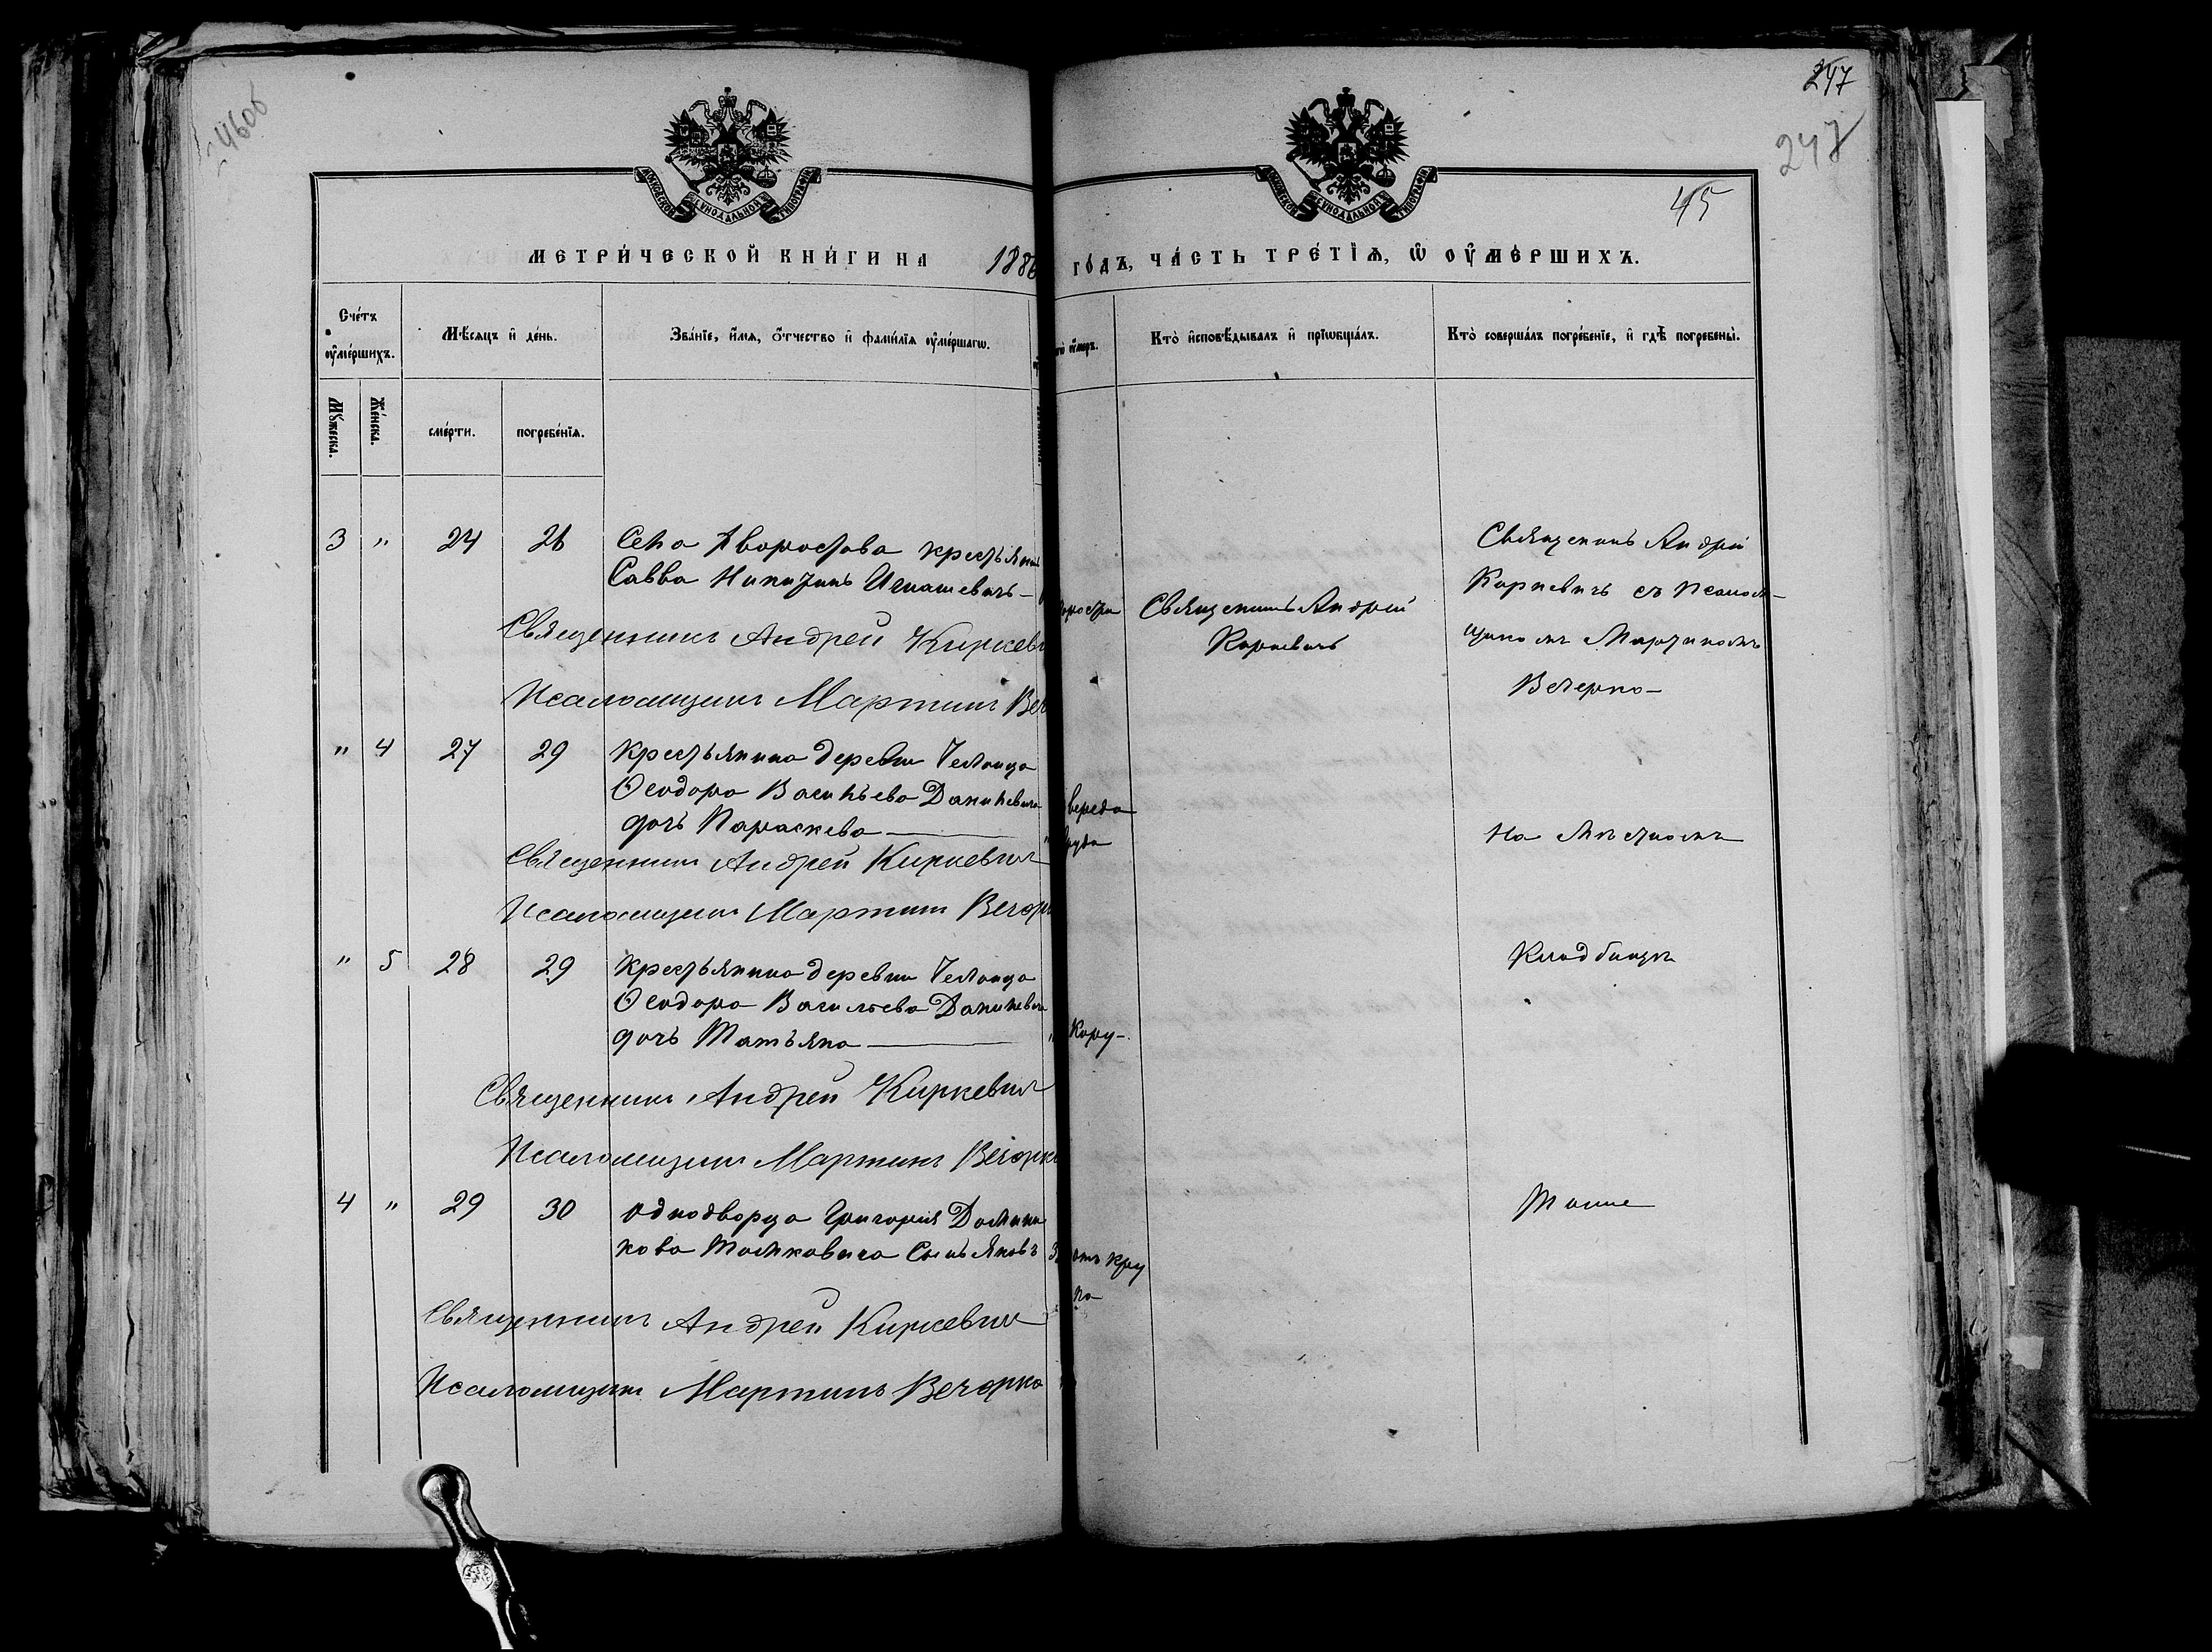 246об
247
247
45
МОСКОВСКОЙ СѴНОДАЛЬНОЙ ТИПОГРАФІИ
МОСКОВСКОЙ СѴНОДАЛЬНОЙ ТИПОГРАФІИ
МЕТРИ́ЧЕСКОЙ КНИ́ГИ НА 1886 ГО́ДЪ, ЧА́СТЬ ТРЕ́ТІѦ, Ѡ҆ ОУ҆МЕ́РШИХЪ.
Сче́тъ оу҆ме́ршихъ.
Мѣ́сяцъ и҆ де́нь.
Зва́нїе, и҆́мѧ, ѻ҆́тчество и҆ фами́лїѧ оу҆ме́ршагѡ.
Кто̀ и҆сповѣ́дывалъ и҆ прїѡбща́лъ.
Кто̀ соверша́лъ погребе́нїе, и҆ гдѣ̀ погребены̀.
Мꙋ́жеска.
Же́нска.
сме́рти.
погребе́нїѧ.
3 " 24 26 Села крестьянинъ
Савва Никитинъ
Священникъ Андрей Киркеви
Псаломщикъ Мартинъ Веч
Священникъ Андрей
Киркевичъ
Священникъ Андрей
Киркевичъ съ псалом-
щикомъ Мартиномъ
Вечерко-
" 4 27 29 Крестьянина деревни
Ѳеодора Васильева Данилевича
дочь Параскева
Священникъ Андрей Киркевичъ
Псаломщикъ Мартинъ Вечорк
На мѣстномъ
" 5 28 29 Крестьянина деревни
Ѳеодора Васильева Данилевича
дочь Татьяна
Кору-
Священникъ Андрей Киркевичъ
Псаломщикъ Мартинъ Вечорко
Кладбищѣ
4 " 29 30 Однодворца Григорія Домини
кова Томковича сынъ Яковъ 3 отъ кру
па
Священникъ Андрей Киркевич
Псаломщикъ Мартинъ Вечорко
Тоже